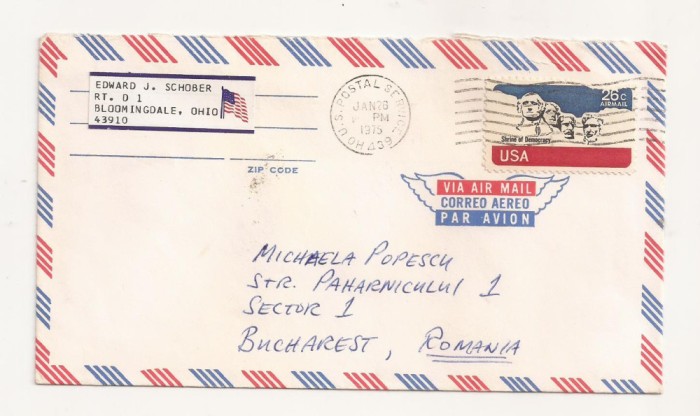 EDWARD J. SCHOBER
RT. 0 1
BLOOMINGDALE, OHIO
43910
ZIP CODE
U.S. POSTAL SERVICE
JAN 26
PM
1975
OH 439
26c
AIRMAIL
Shrine of Democracy
USA
VIA AIR MAIL
CORREO AEREO
PAR AVION
MICHAELA POPESCU
STR. PAHARNICULUI 1
SECTOR 1
BUCHAREST, ROMANIA